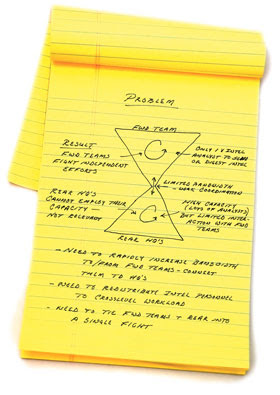 PROBLEM
FWD TEAM
RESULT
FWD TEAMS
FIGHT INDEPENDENT
EFFORTS
ONLY 1 INTEL
ANALYST TO
OR DIGEST INTEL
LIMITED BANDWIDTH
- WORK COORDINATION
REAR HQ'S
CANNOT EMPLOY THEIR
CAPACITY -
NOT RELEVANT
HIGH CAPACITY
(LOTS OF ANALYSTS)
BUT LIMITED INTER-
ACTION WITH FWD
TEAMS
REAR HQ'S
- NEED TO RAPIDLY INCREASE BANDWIDTH
TO/FROM FWD TEAMS - CONNECT
THEM TO HQ'S
- NEED TO REDISTRIBUTE INTEL PERSONNEL
TO CROSSLEVEL WORKLOAD
- NEED TO TIE FWD TEAMS & REAR INTO
A SINGLE FIGHT